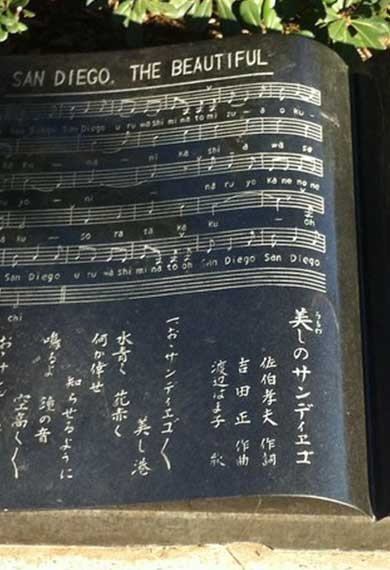 SAN DIEGO, THE BEAUTIFUL
San Diego San Diego u ru wa shi mi na to mi zu — a o ku —
ka ku — na — ni ka shi a wa se
yo — ni — na ru yo ka ne no ne
ku — so ra ta ka ku — oh
San Diego u ru wa shi mi na to oh San Diego San Diego
chi
美しのサンディエゴ
佐伯孝夫 作詞
吉田 正 作曲
渡辺はま子 歌
一、おゝサンディエゴ〱
美し港
水青く 花赤く
何か倖せ
知らせるように
鳴るよ 鐘の音
空高く〱